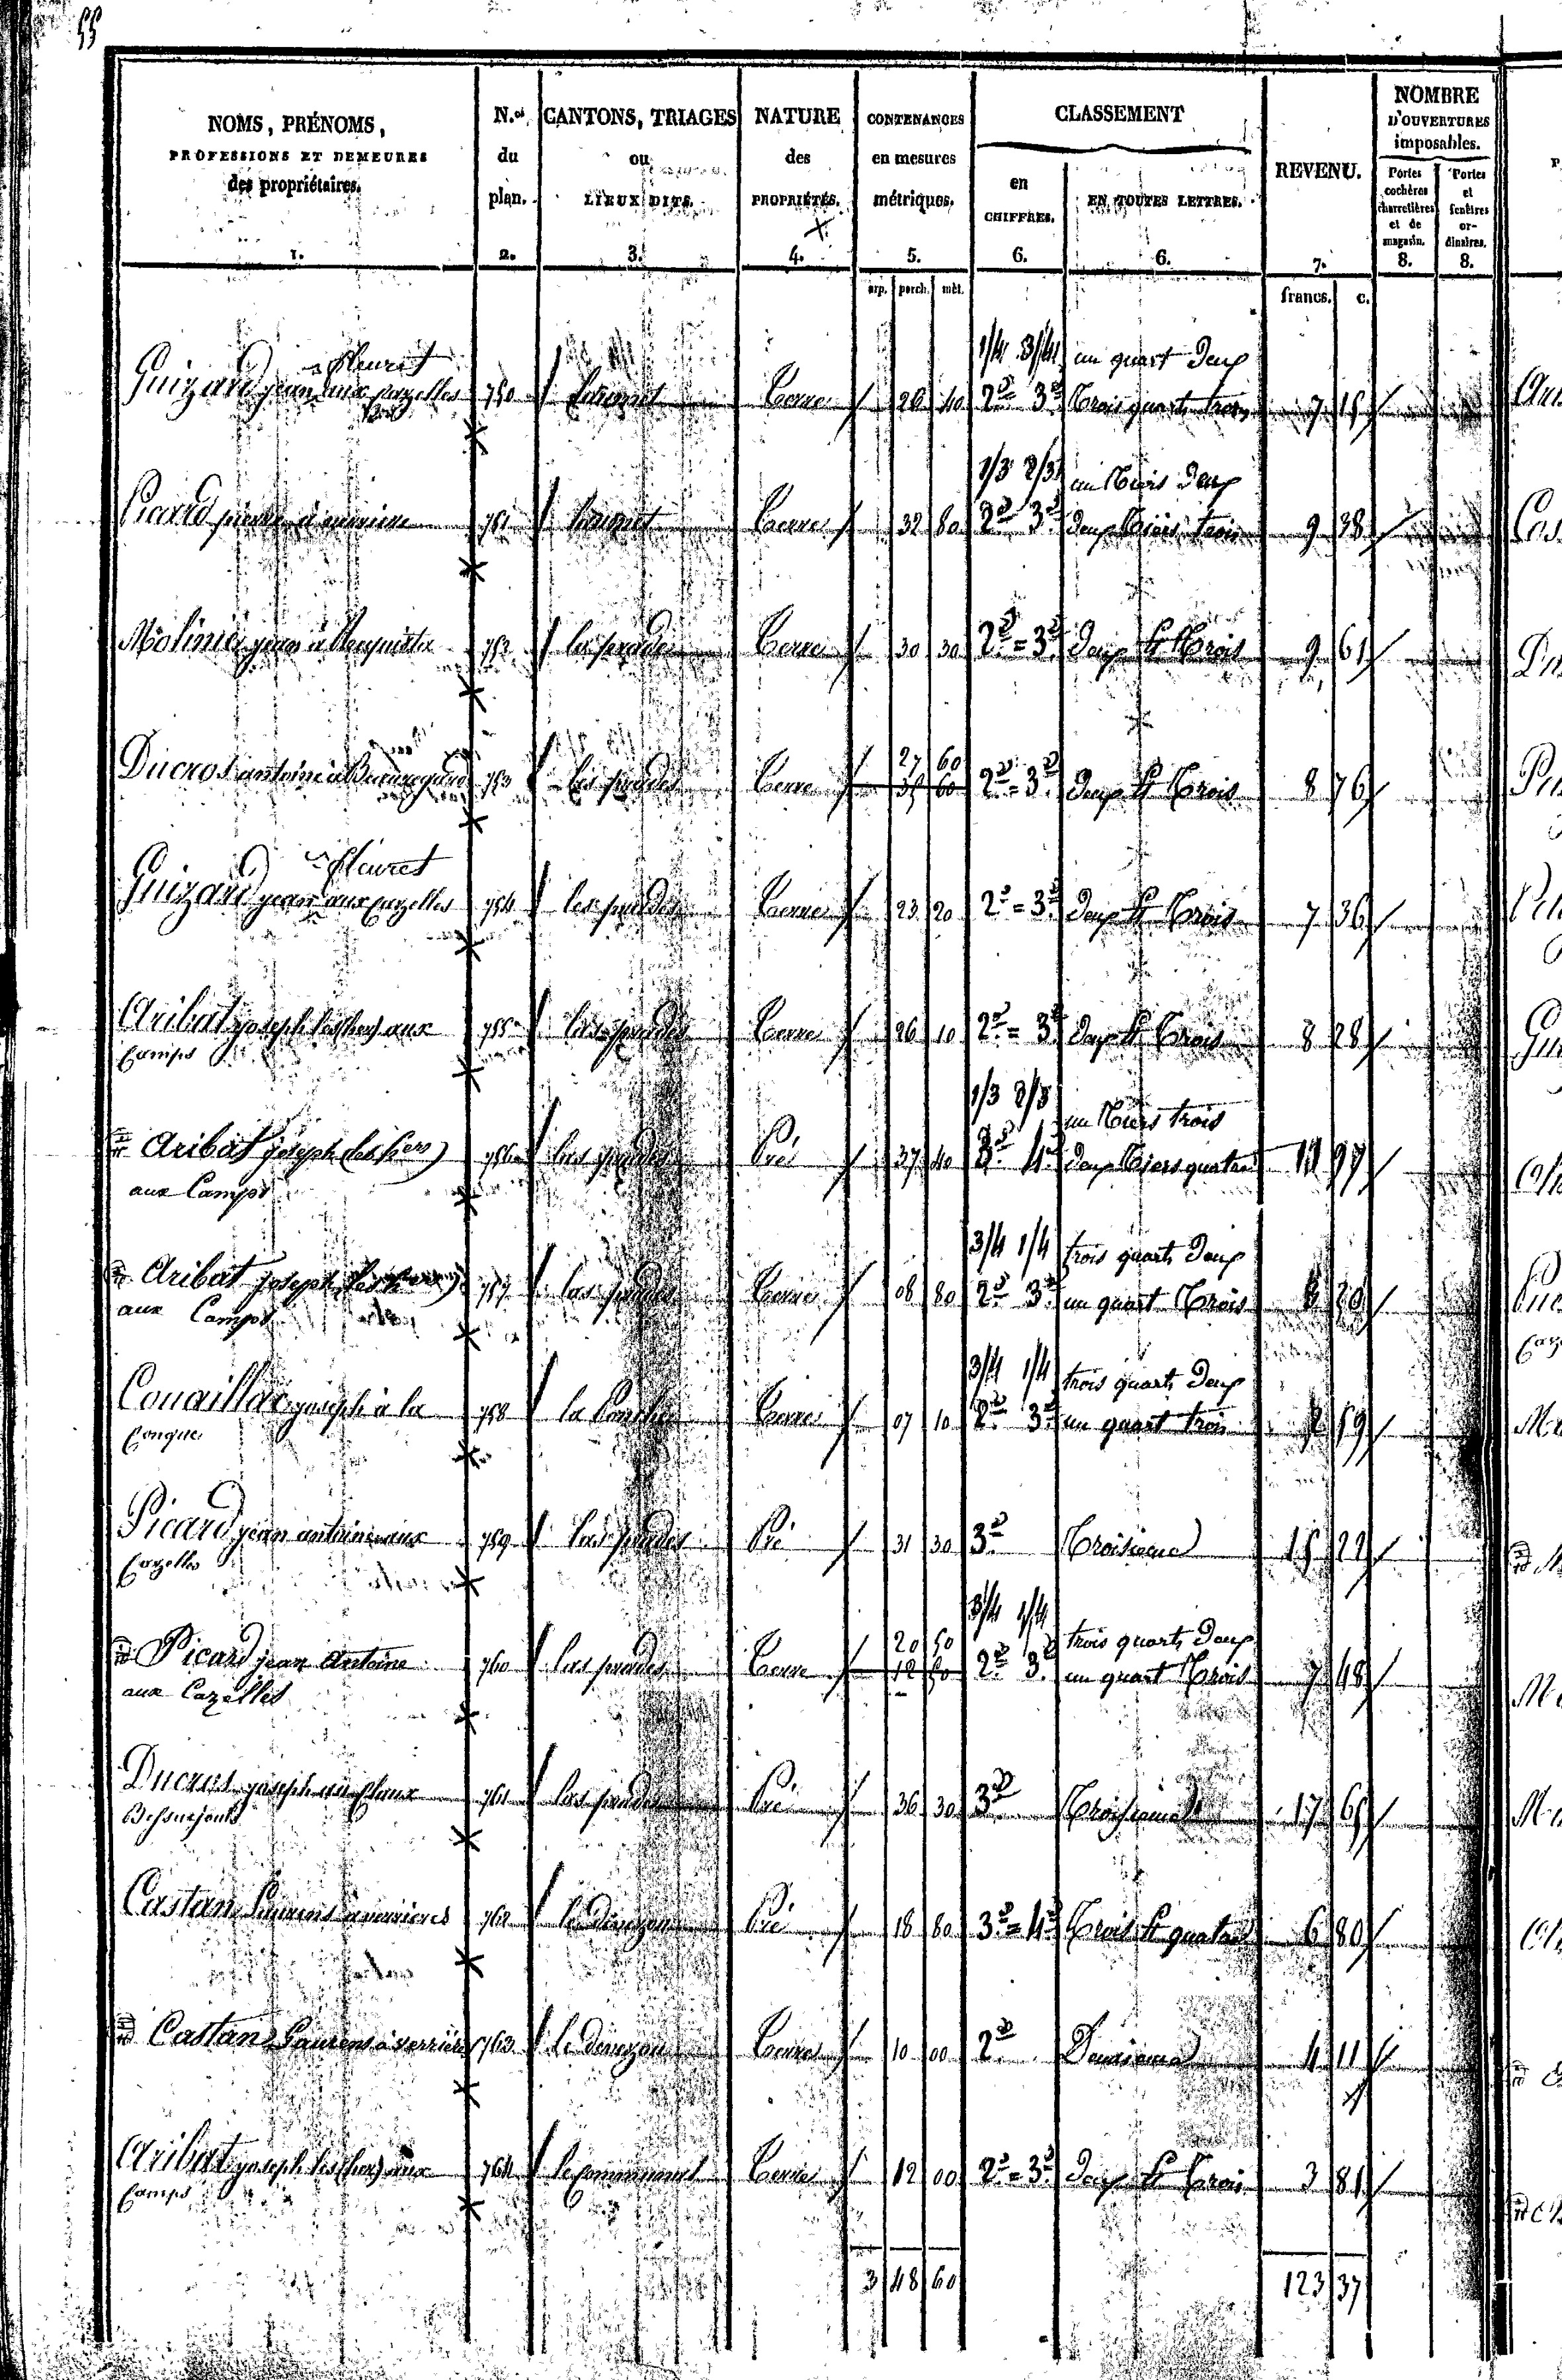 55
NOMS, PRÉNOMS, PROFESSIONS ET DEMEURES des propriétaires. 1.
N.os du plan. 2.
CANTONS, TRIAGES ou LIEUX DITS. 3.
NATURE des PROPRIÉTÉS. 4.
CONTENANCES en mesures métriques. 5.
CLASSEMENT
en CHIFFRES. 6.
EN TOUTES LETTRES. 6.
REVENU. 7.
NOMBRE D'OUVERTURES imposables.
Portes cochères charretières et de magasin. 8.
Portes et fenêtres ordinaires. 8.
arp. perch. mèt. francs. c.
fleuret 1/4 3/4 un quart deux
Guizard jean aux cazelles 750 Terre 26 40 2e 3e Trois quarts trois 7 15
1/3 2/3 un tiers deux
Picard pierre à verriere 751 Terre 32 80 2e 3e deux tiers trois 9 38
Molinié jean à 752 las prades Terre 30 30 2e = 3e deux et trois 9 61
27 60
Ducros antoine à Beauregard 753 las prades Terre 35 60 2e = 3e deux et trois 8 76
fleuret
Guizard jean aux cazelles 754 las prades Terre 23 20 2e = 3e deux et trois 7 36
Aribat joseph (les hers) aux 755 las prades Terre 26 10 2e = 3e deux et trois 8 28
camps
1/3 2/3 un tiers trois
id Aribat joseph (les hers) 756 las prades Pré 37 40 3e 4e deux tiers quatre 97
aux Camps
3/4 1/4 trois quarts deux
id Aribat joseph 757 las prades Terre 08 80 2e 3e un quart trois 20
aux Camps
3/4 1/4 trois quarts deux
Couaillac joseph à la 758 la Terre 07 10 2e 3e un quart trois 2 59
conque
Picard jean antoine aux 759 las prades Pré 31 30 3e Troisieme 15 22
cazelles
3/4 1/4
20 50 trois quarts deux
id Picard jean Antoine 760 las prades Terre 2e 3e un quart trois 7 48
aux Cazelles
Ducros joseph au Claux 761 las prades Pré 36 30 3e Troisieme 17 65
Bessuejouls
Castan Laurens à verrieres 762 le devezou Pré 18 80 3e = 4e Trois et quatre 6 80
id Castan Laurens à verriere 763 le devezou Terre 10 00 2e Deuxieme 4 11
Aribat joseph (les hers) aux 764 Terre 12 00 2e = 3e deux et trois 3 81
camps
3 48 60 123 37